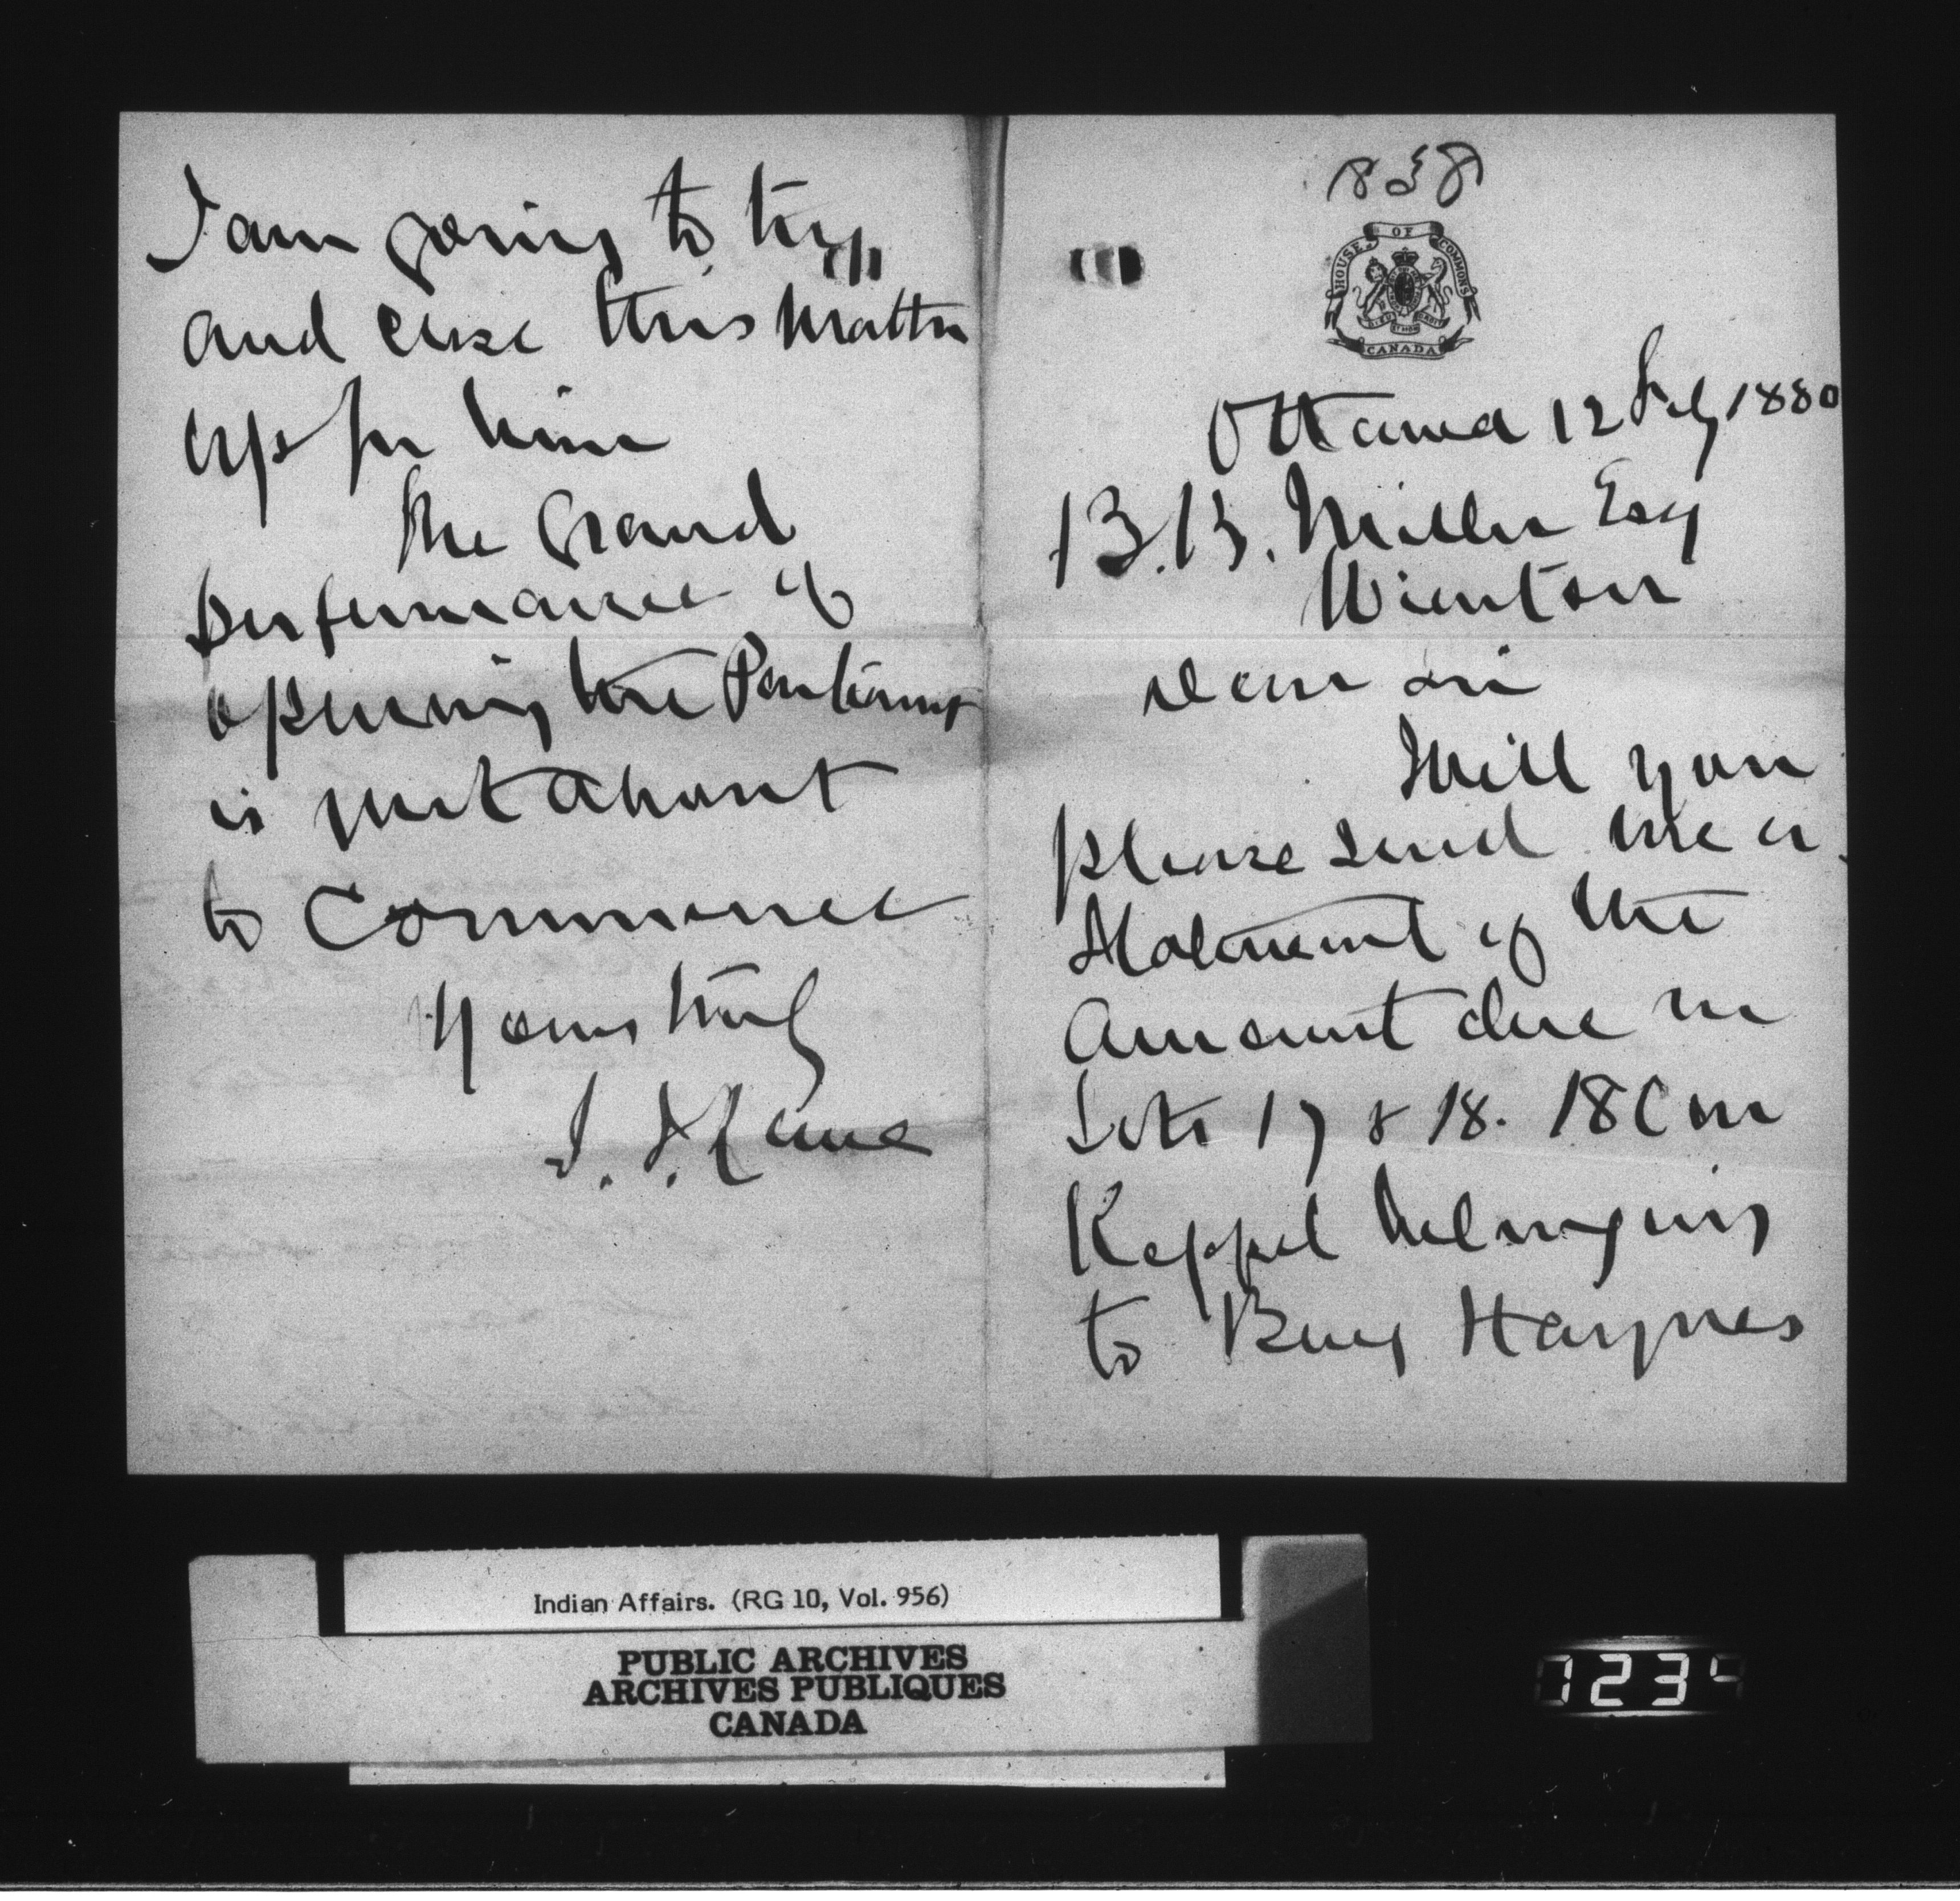 838
HOUSE OF COMMONS
DIEU ET MON DROIT
CANADA
Ottawa 12 Feby 1880
B.B. Miller Esq
Wiarton
Dear Sir
Will you
please send me a
Statement of the
Amount due on
Lots 17 & 18. 18 Con
Keppel belonging
to Benj Haynes
I am going to try
and close this matter
up for him
The Grand
performance of
opening the Parliamt
is just about
to Commence
Yours truly
S. J. Lane
Indian Affairs. (RG 10, Vol. 956)
PUBLIC ARCHIVES
ARCHIVES PUBLIQUES
CANADA
0234